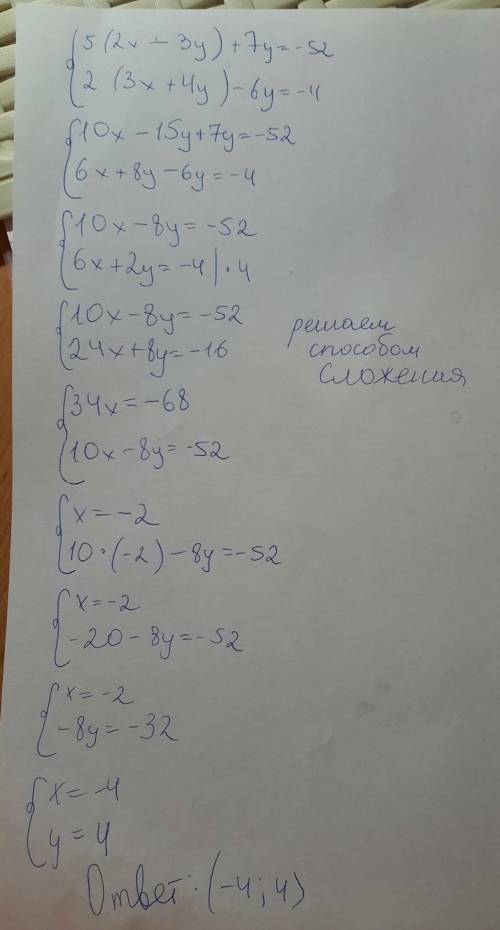 5(2x - 3y) + 7y = -52
2 (3x + 4y) - 6y = -4
10x - 15y + 7y = -52
6x + 8y - 6y = -4
10x - 8y = -52
6x + 2y = -4 | · 4
10x - 8y = -52
24x + 8y = -16
решаем
способом
сложения
34x = -68
10x - 8y = -52
x = -2
10 · (-2) - 8y = -52
x = -2
-20 - 8y = -52
x = -2
-8y = -32
x = -4
y = 4
Ответ: (-4; 4)